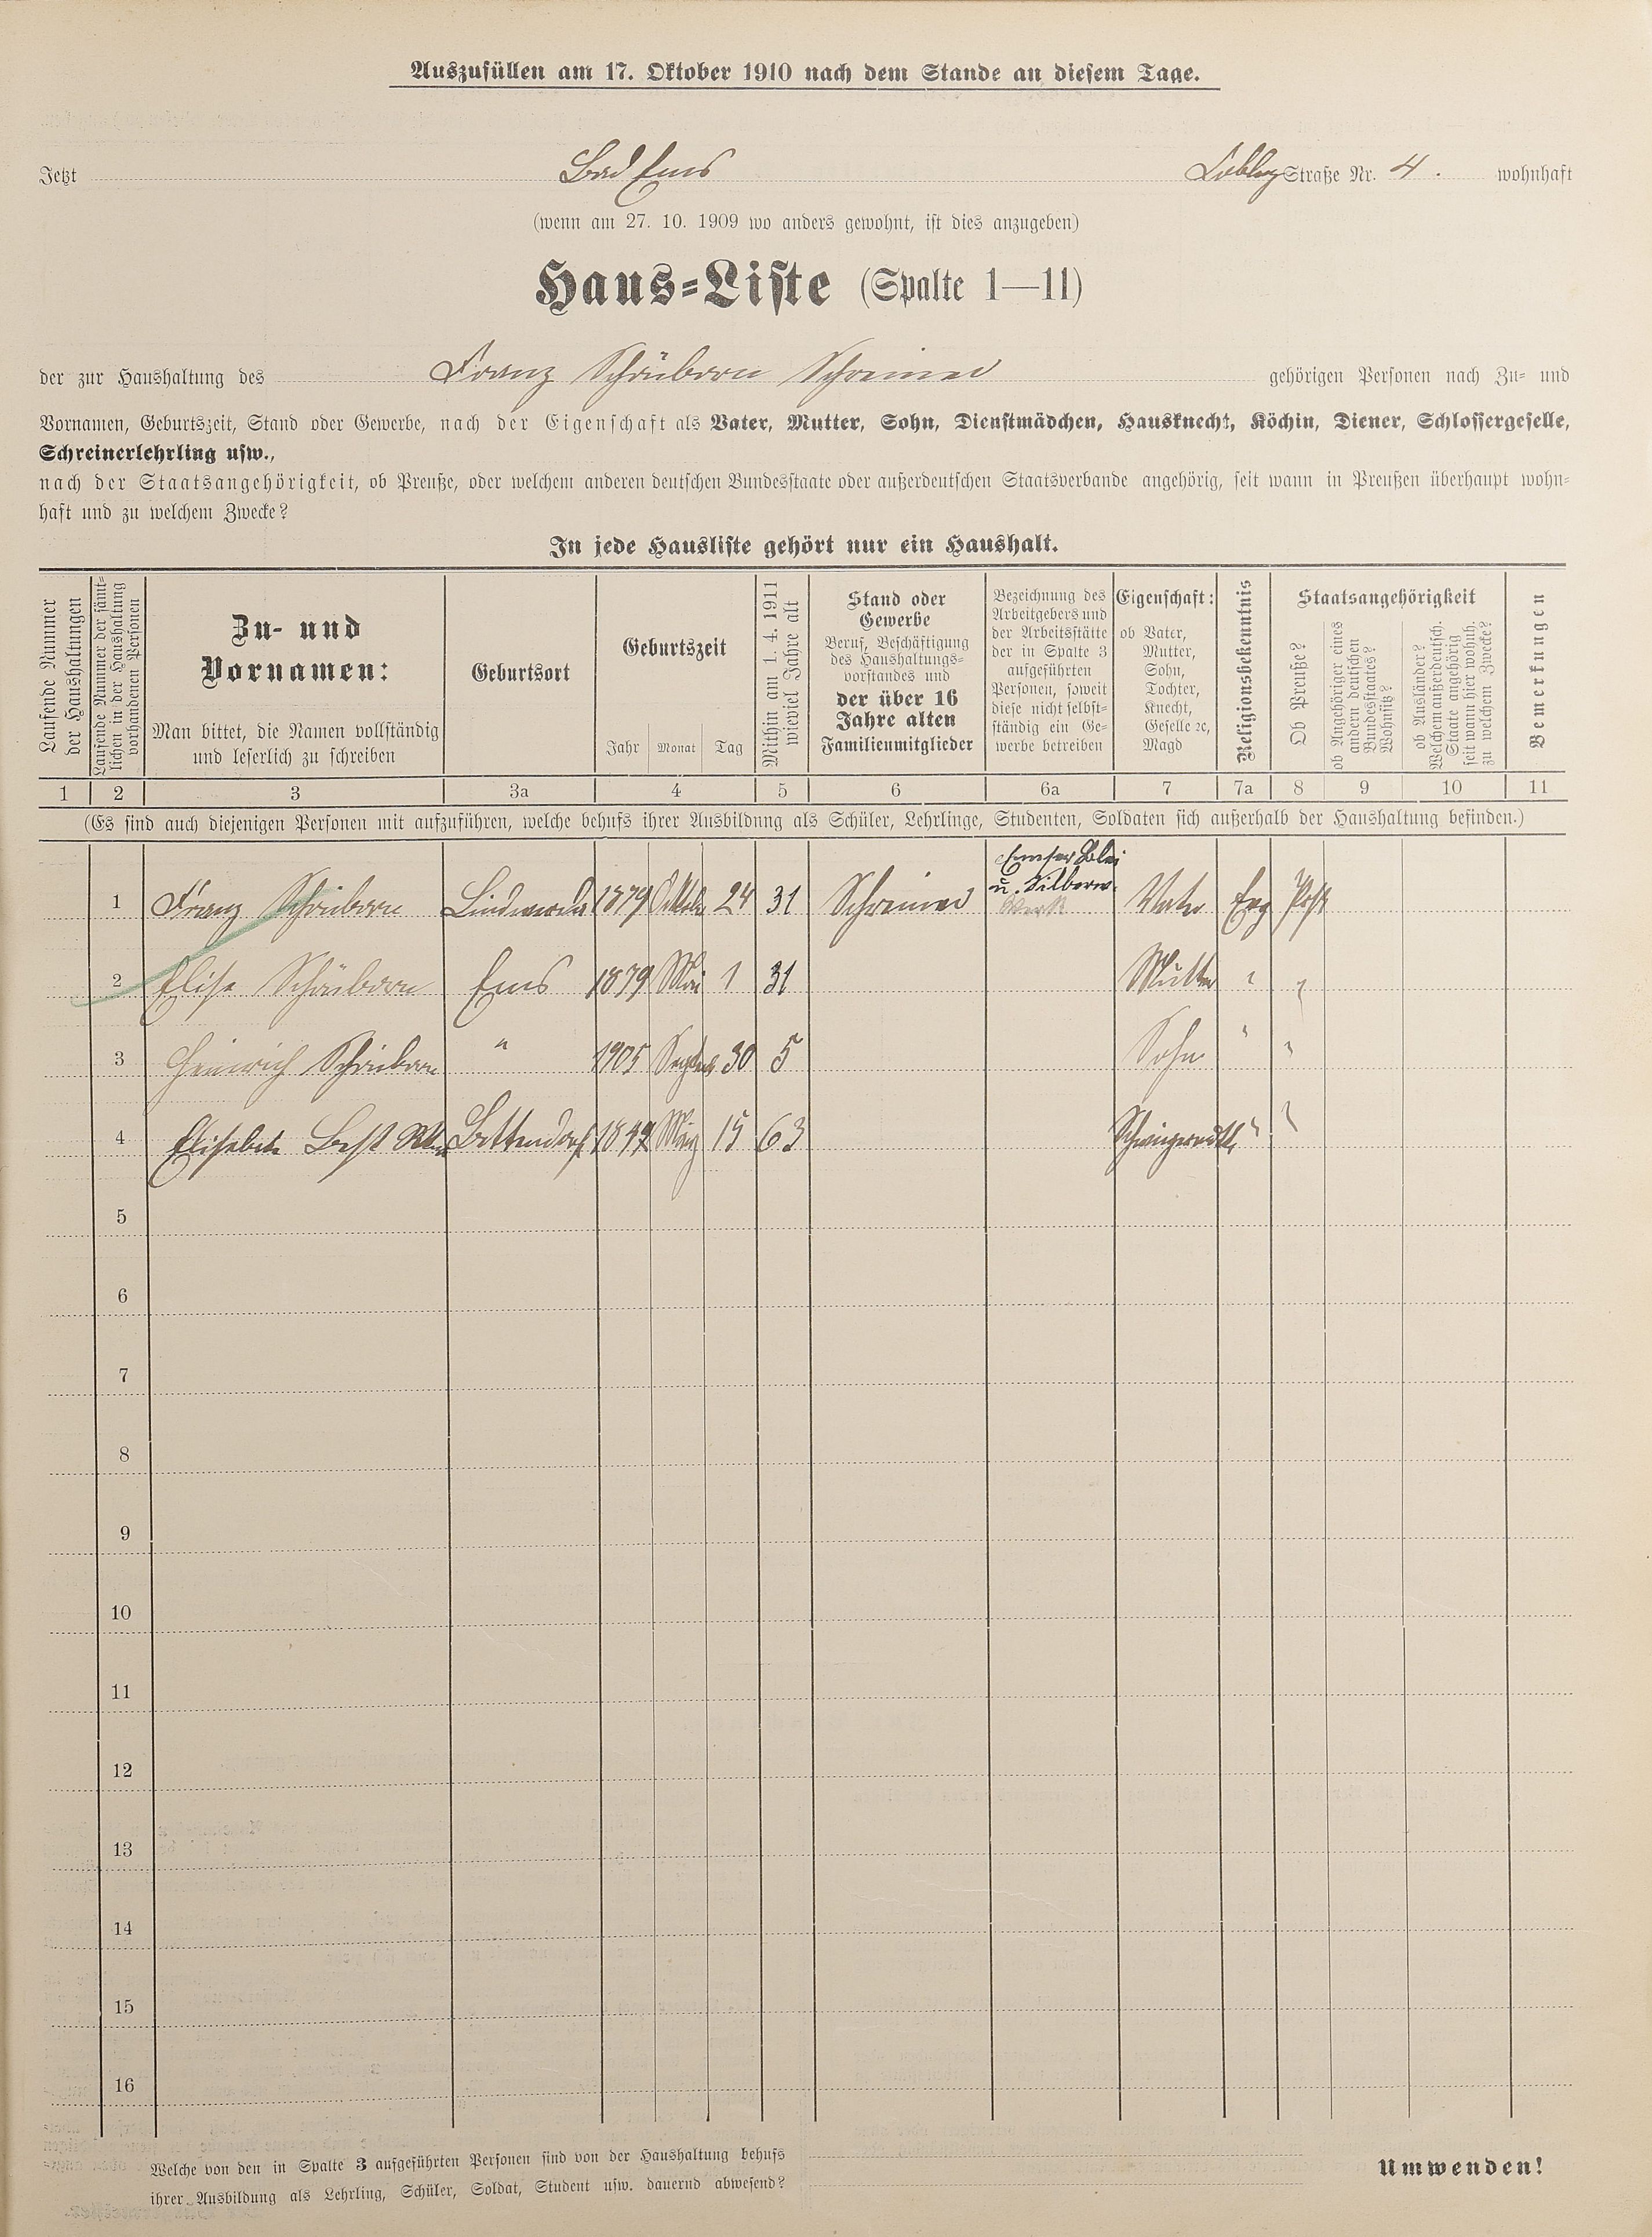 Auszufüllen am 17. Oktober 1910 nach dem Stande an diesem Tage.
Jetzt Bad Ems Straße Nr. 4. wohnhaft
(wenn am 27. 10. 1909 wo anders gewohnt, ist dies anzugeben)
Haus=Liste (Spalte 1—11)
der zur Haushaltung des Franz Schriner gehörigen Personen nach Zu= und
Vornamen, Geburtszeit, Stand oder Gewerbe, nach der Eigenschaft als Vater, Mutter, Sohn, Dienstmädchen, Hausknecht, Köchin, Diener, Schlossergeselle,
Schreinerlehrling usw.,
nach der Staatsangehörigkeit, ob Preuße, oder welchem anderen deutschen Bundesstaate oder außerdeutschen Staatsverbande angehörig, seit wann in Preußen überhaupt wohn=
haft und zu welchem Zwecke?
In jede Hausliste gehört nur ein Haushalt.
Laufende Nummer
der Haushaltungen
Laufende Nummer der sämt=
lichen in der Haushaltung
vorhandenen Personen
Zu- und
Vornamen:
Man bittet, die Namen vollständig
und leserlich zu schreiben
Geburtsort
Geburtszeit
Jahr Monat Tag
Mithin am 1. 4. 1911
wieviel Jahre alt
Stand oder
Gewerbe
Beruf, Beschäftigung
des Haushaltungs=
vorstandes und
der über 16
Jahre alten
Familienmitglieder
Bezeichnung des
Arbeitgebers und
der Arbeitsstätte
der in Spalte 3
aufgeführten
Personen, soweit
diese nicht selbst=
ständig ein Ge=
werbe betreiben
Eigenschaft:
ob Vater,
Mutter,
Sohn,
Tochter,
Knecht,
Geselle ꝛc,
Magd
Religionsbekenntnis
Staatsangehörigkeit
Ob Preuße?
ob Angehöriger eines
andern deutschen
Bundesstaates?
Wohnsitz?
ob Ausländer?
Welchem außerdeutsch.
Staate angehörig
seit wann hier wohnh.
zu welchem Zwecke?
Bemerkungen
1 2 3 3a 4 5 6 6a 7 7a 8 9 10 11
(Es sind auch diejenigen Personen mit aufzuführen, welche behufs ihrer Ausbildung als Schüler, Lehrlinge, Studenten, Soldaten sich außerhalb der Haushaltung befinden.)
Emser Blei
u. Silberw.
Werk
1 Franz 1879 Oktober 24 31 Schreiner Vater Evg
2 Elise Ems 1879 Mai 1 31 Mutter " "
3 Heinrich " 1905 Septemb 30 5 Sohn " "
4 Best 1847 März 15 63 Schwiegermutter " "
5
6
7
8
9
10
11
12
13
14
15
16
Welche von den in Spalte 3 aufgeführten Personen sind von der Haushaltung behufs
ihrer Ausbildung als Lehrling, Schüler, Soldat, Student usw. dauernd abwesend?
Umwenden!